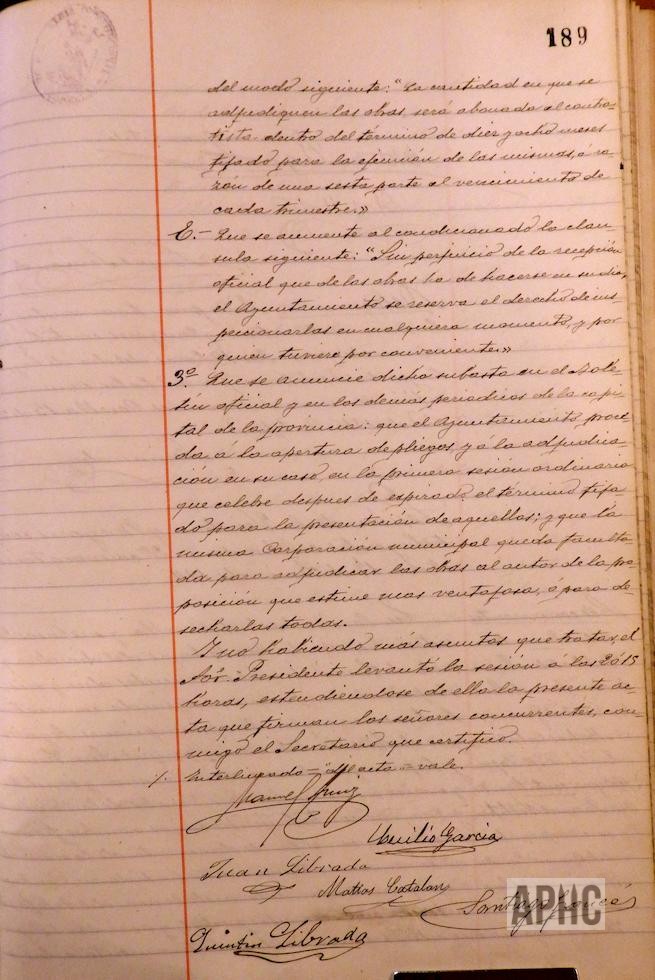 189
del modo siguiente: "La cantidad en que se
adjudiquen las obras será abonada al contra-
tista dentro del término de diez y ocho meses
fijado para la ejecución de las mismas, á ra-
zón de una sesta parte al vencimiento de
cada trimestre.»
E.- Que se aumente al condicionado la clau-
sula siguiente: "Sin perjuicio de la recepción
oficial que de las obras ha de hacerse en su dia,
el Ayuntamiento se reserva el derecho de ins-
peccionarlas en cualquiera momento, y por
quien tuviere por conveniente.»
3º. Que se anuncie dicha subasta en el Bole-
tín oficial y en los demás periodicos de la capi-
tal de la provincia: que el Ayuntamiento proce-
da á la apertura de pliegos y á la adjudica-
ción en su caso, en la primera sesion ordinaria
que celebre despues de expirado el término fija-
do para la presentación de aquellos; y que la
misma Corporación municipal queda faculta-
da para adjudicar las obras al autor de la pro-
posición que estime mas ventajosa, ó para de-
secharlas todas.
Y no habiendo más asuntos que tratar, el
Sór. Presidente levantó la sesión á las 20'15
horas, estendiéndose de ella la presente ac-
ta que firman los señores concurrentes, con-
migo el Secretario que certifico.
Interlineado = = vale.
Manuel Ruiz
Emilio García
Juan Librada
Matías Catalan
Santiago
Quintin Librada
APHC